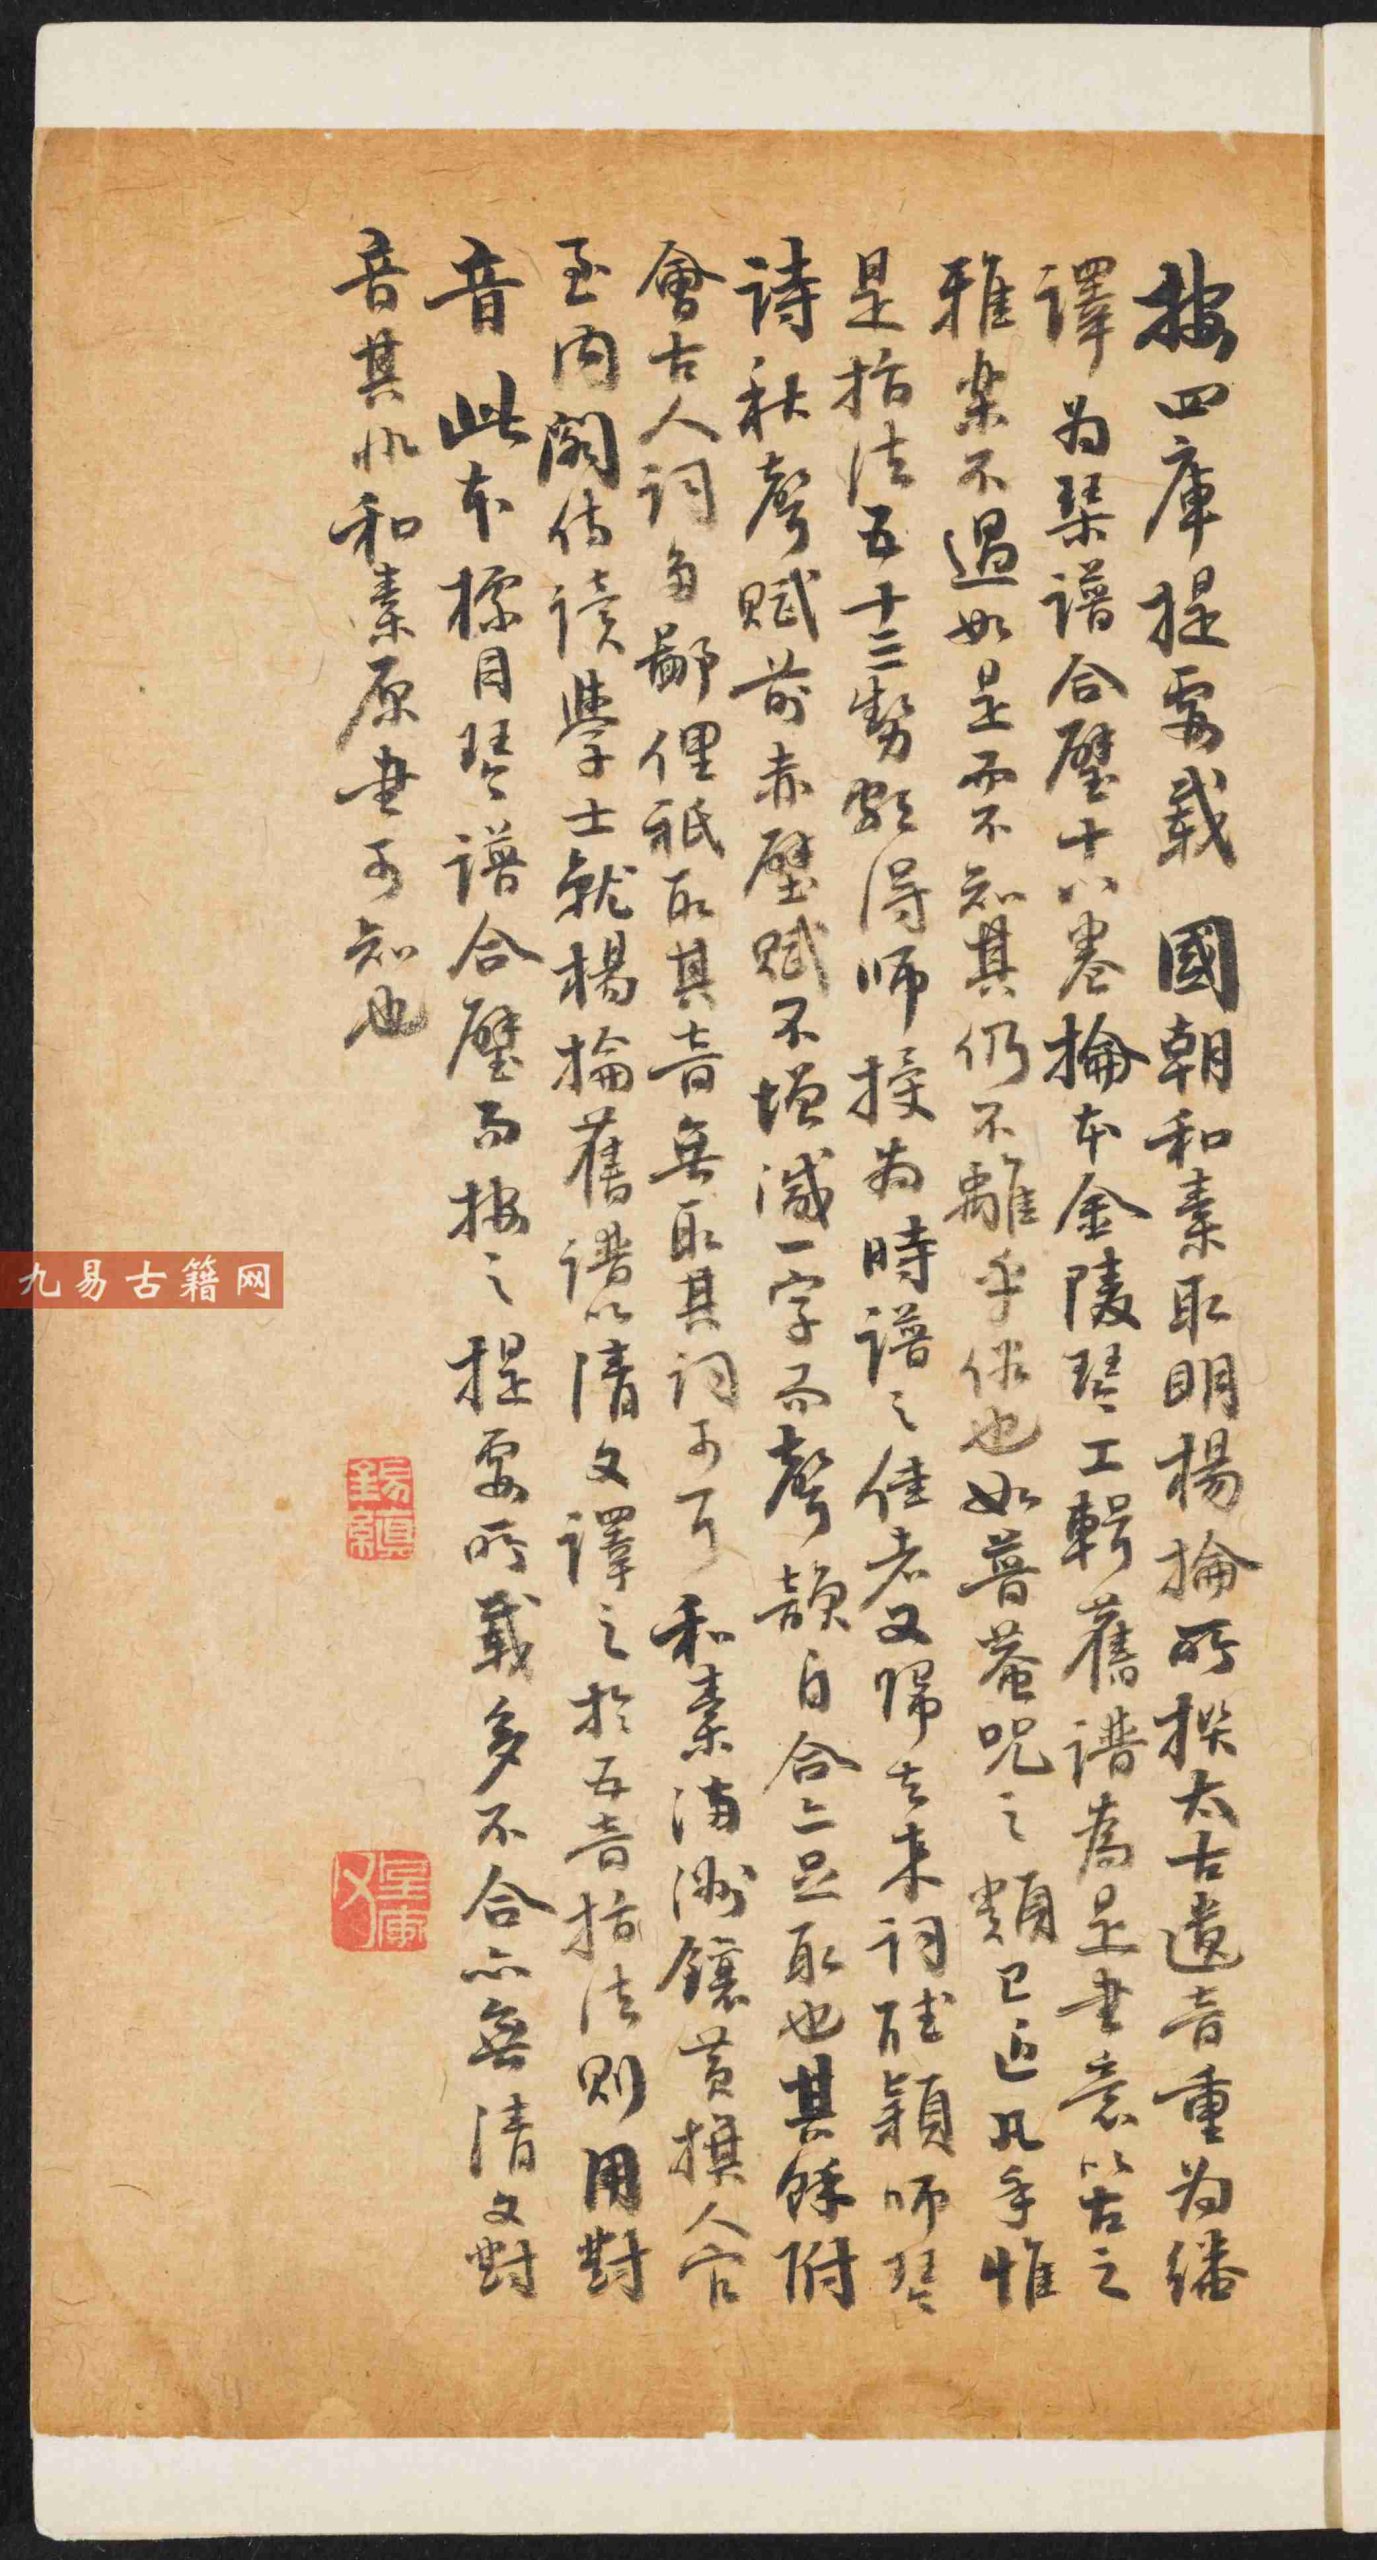 按四庫提要載 國朝和素取明楊掄所撰太古遺音重為繙
譯為琹譜合璧十八卷掄本金陵琴工輯舊譜為是書意古之
雅楽不過如是而不知其仍不離乎俗也如普菴咒之類已近凡手惟
是指法五十三勢頗得師授為時譜之佳者又歸去来詞聽穎師琴
诗秋聲賦前赤壁賦不增減一字而聲韻自合亦足取也其餘附
會古人詞多鄙俚祇取其音無取其詞可耳和素滿洲鑲黄旗人官
至内閣侍讀學士就楊掄舊譜以清文譯之於五音指法則用對
音 此本標目琴譜合璧而按之提要所載多不合亦無清文對
音其非和素原書可知也
九易古籍网